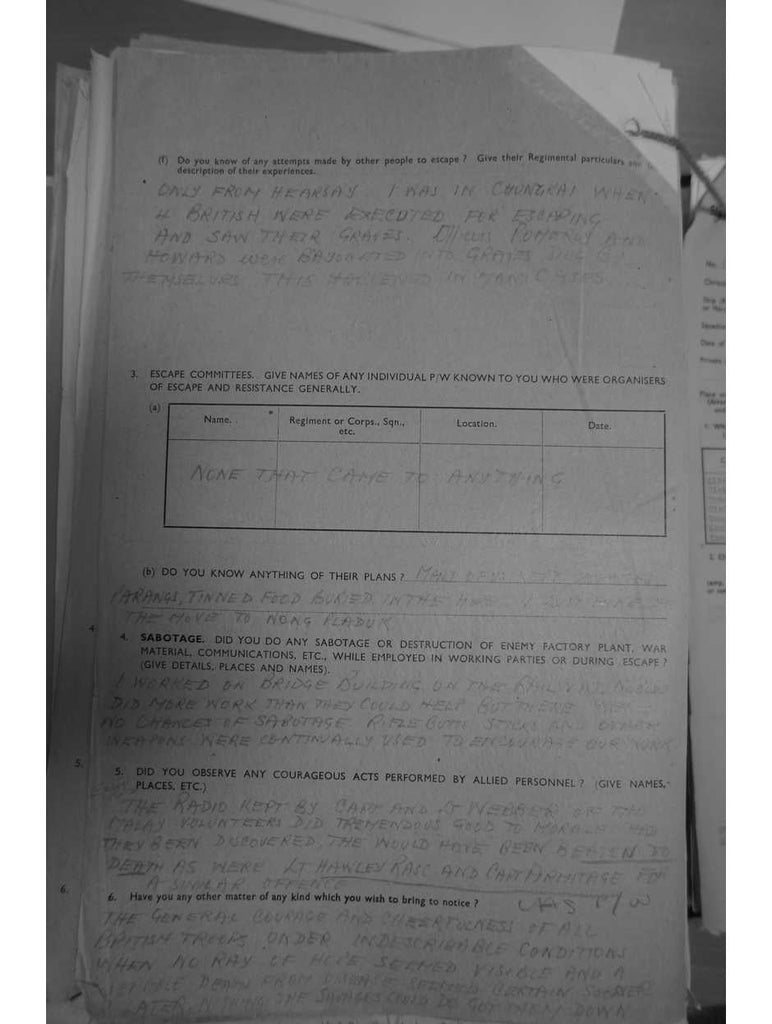 (f) Do you know of any attempts made by other people to escape ? Give their Regimental particulars and
description of their experiences.
ONLY FROM HEARSAY. I WAS IN CHUNGKAI WHEN
4 BRITISH WERE EXECUTED FOR ESCAPING
AND SAW THEIR GRAVES. Officers POMEROY AND
HOWARD WERE BAYONETED INTO GRAVES DUG BY
THEMSELVES THIS HAPPENED IN MANY CASES
3. ESCAPE COMMITTEES. GIVE NAMES OF ANY INDIVIDUAL P/W KNOWN TO YOU WHO WERE ORGANISERS
OF ESCAPE AND RESISTANCE GENERALLY.
(a)
Name. Regiment or Corps., Sqn., Location. Date.
etc.
NONE THAT CAME TO ANYTHING
(b) DO YOU KNOW ANYTHING OF THEIR PLANS ? MANY OF US KEPT
PARANGS, TINNED FOOD BURIED IN THE
THE MOVE TO NONG PLADUK
4. 4. SABOTAGE. DID YOU DO ANY SABOTAGE OR DESTRUCTION OF ENEMY FACTORY PLANT, WAR
MATERIAL, COMMUNICATIONS, ETC., WHILE EMPLOYED IN WORKING PARTIES OR DURING ESCAPE ?
(GIVE DETAILS, PLACES AND NAMES).
I WORKED ON BRIDGE BUILDING ON THE RAILWAY. NOBODY
DID MORE WORK THAN THEY COULD HELP BUT THERE WERE
NO CHANCES OF SABOTAGE RIFLE BUTTS STICKS AND OTHER
WEAPONS WERE CONTINUALLY USED TO ENCOURAGE OUR WORK
5. 5. DID YOU OBSERVE ANY COURAGEOUS ACTS PERFORMED BY ALLIED PERSONNEL ? (GIVE NAMES,
PLACES, ETC.)
THE RADIO KEPT BY CAPT AND LT WEBBER OF THE
MALAY VOLUNTEERS DID TREMENDOUS GOOD TO MORALE HAD
THEY BEEN DISCOVERED, THE WOULD HAVE BEEN BEATEN TO
DEATH AS WERE LT HAWLEY RASC AND CAPT ARMITAGE FOR
A SIMILAR OFFENCE
6. 6. Have you any other matter of any kind which you wish to bring to notice ?
THE GENERAL COURAGE AND CHEERFULNESS OF ALL
BRITISH TROOPS UNDER INDESCRIBABLE CONDITIONS
WHEN NO RAY OF HOPE SEEMED VISIBLE AND A
DEATH FROM DISEASE SEEMED CERTAIN SOONER
OR LATER, NOTHING THE SAVAGES COULD DO GOT THEM DOWN